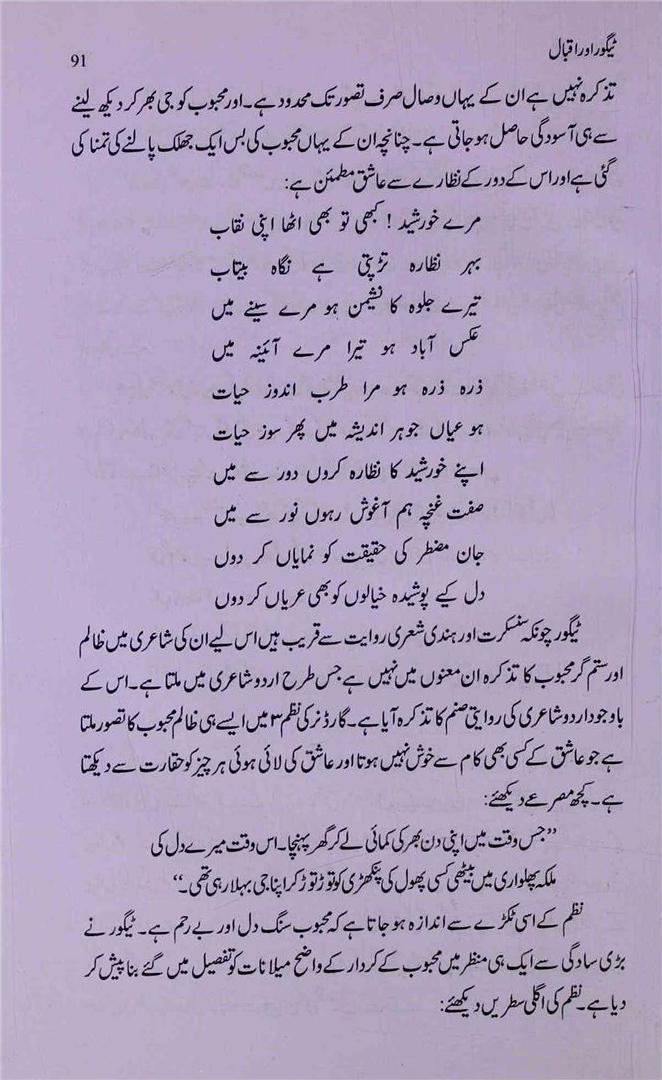 ٹیگور اور اقبال
91
تذکرہ نہیں ہے ان کے یہاں وصال صرف تصور تک محدود ہے۔ اور محبوب کو جی بھر کر دیکھ لینے
سے ہی آسودگی حاصل ہو جاتی ہے۔ چنانچہ ان کے یہاں محبوب کی بس ایک جھلک پا لنے کی تمنا کی
گئی ہے اور اس کے دور کے نظارے سے عاشق مطمئن ہے:
مرے خورشید! کبھی تو بھی اٹھا اپنی نقاب
بہر نظارہ تڑپتی ہے نگاہ بیتاب
تیرے جلوہ کا نشیمن ہو مرے سینے میں
عکس آباد ہو تیرا مرے آئینہ میں
ذرہ ذرہ ہو مرا طرب اندوز حیات
ہو عیاں جوہر اندیشہ میں پھر سوز حیات
اپنے خورشید کا نظارہ کروں دور سے میں
صفت غنچہ ہم آغوش رہوں نور سے میں
جان مضطر کی حقیقت کو نمایاں کر دوں
دل کیے پوشیدہ خیالوں کو بھی عریاں کر دوں
ٹیگور چونکہ سنسکرت اور ہندی شعری روایت سے قریب ہیں اس لیے ان کی شاعری میں ظالم
اور ستم گر محبوب کا تذکرہ ان معنوں میں نہیں ہے جس طرح اردو شاعری میں ملتا ہے۔ اس کے
باوجود اردو شاعری کی روایتی صنم کا تذکرہ آیا ہے۔ گارڈنر کی نظم ۳ میں ایسے ہی ظالم محبوب کا تصور ملتا
ہے جو عاشق کے کسی بھی کام سے خوش نہیں ہوتا اور عاشق کی لائی ہوئی ہر چیز کو حقارت سے دیکھتا
ہے۔ کچھ مصرعے دیکھئے:
”جس وقت میں اپنی دن بھر کی کمائی لے کر گھر پہنچا۔ اس وقت میرے دل کی
ملکہ پھلواری میں بیٹھی کسی پھول کی پنکھڑی کو توڑ توڑ کر اپنا جی بہلا رہی تھی۔“
نظم کے اسی ٹکڑے سے اندازہ ہو جاتا ہے کہ محبوب سنگ دل اور بے رحم ہے۔ ٹیگور نے
بڑی سادگی سے ایک ہی منظر میں محبوب کے کردار کے واضح میلانات کو تفصیل میں گئے بنا پیش کر
دیا ہے۔ نظم کی اگلی سطریں دیکھئے: